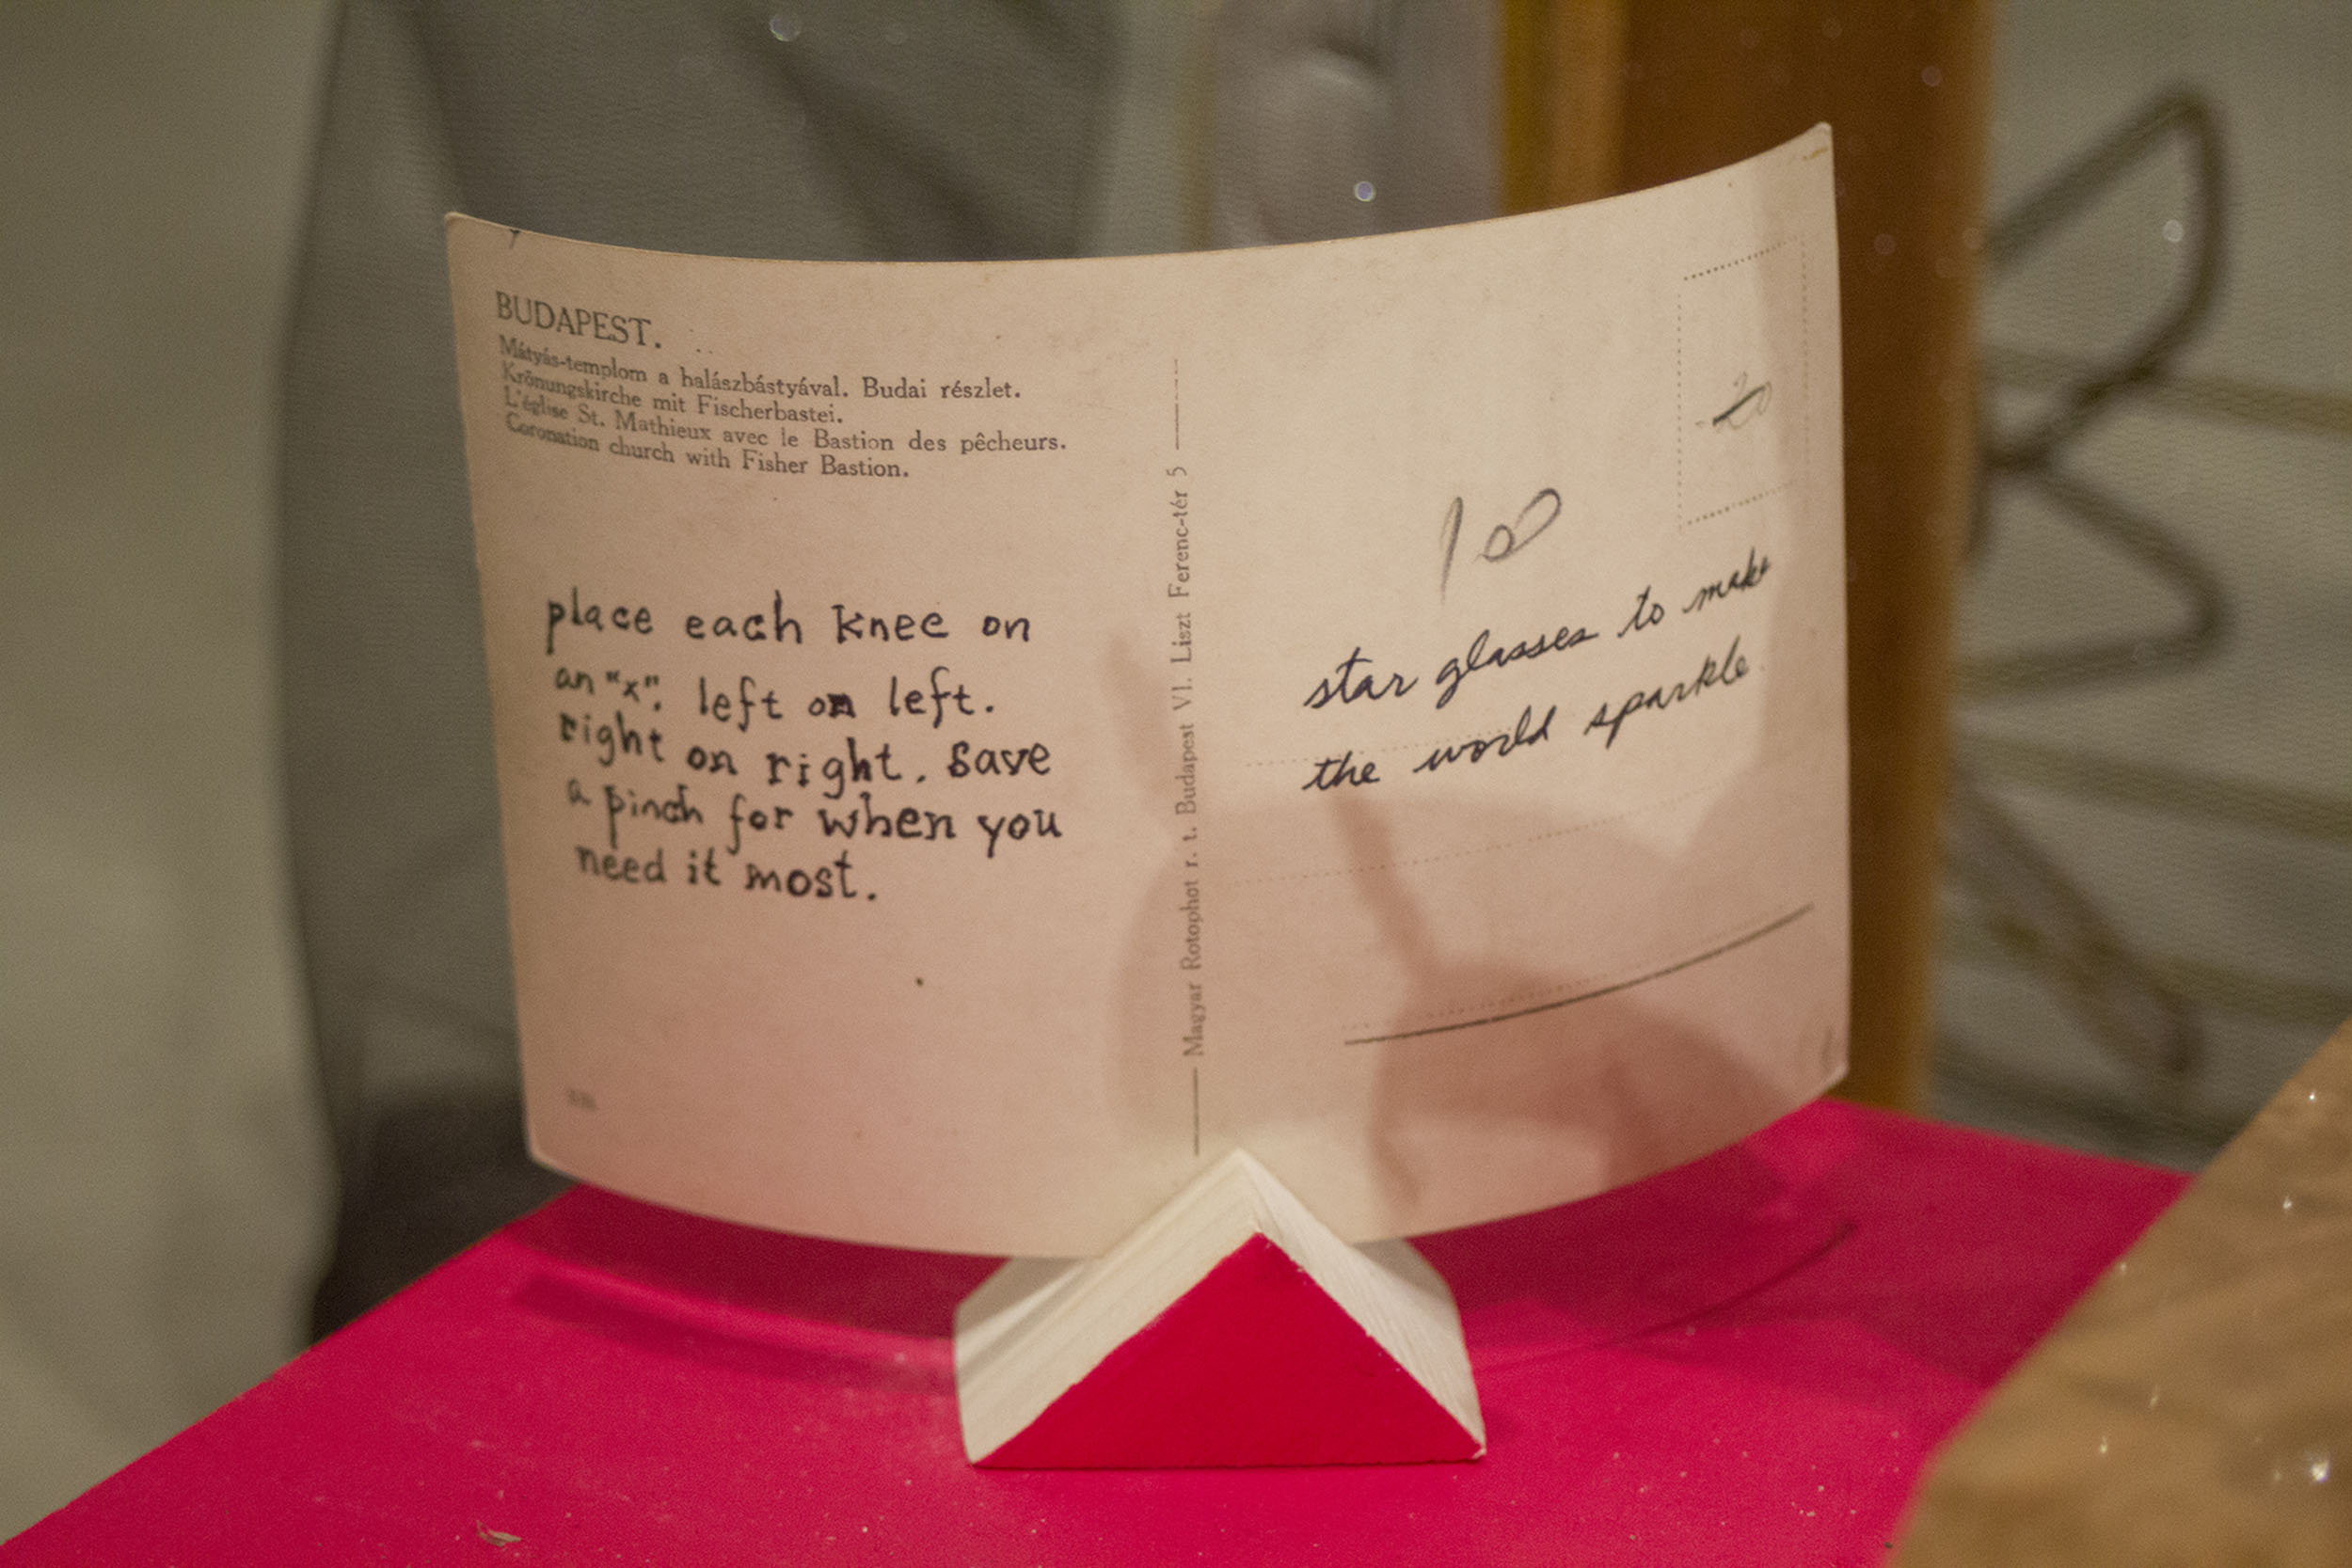 BUDAPEST.
Mátyás-templom a halászbástyával. Budai részlet.
Krönungskirche mit Fischerbastei.
L'église St. Mathieux avec le Bastion des pêcheurs.
Coronation church with Fisher Bastion.
place each knee on
an "x". left on left.
right on right. save
a pinch for when you
need it most.
Magyar Rotophot r. t. Budapest VI. Liszt Ferenc-tér 5
20
10
star glasses to make
the world sparkle.